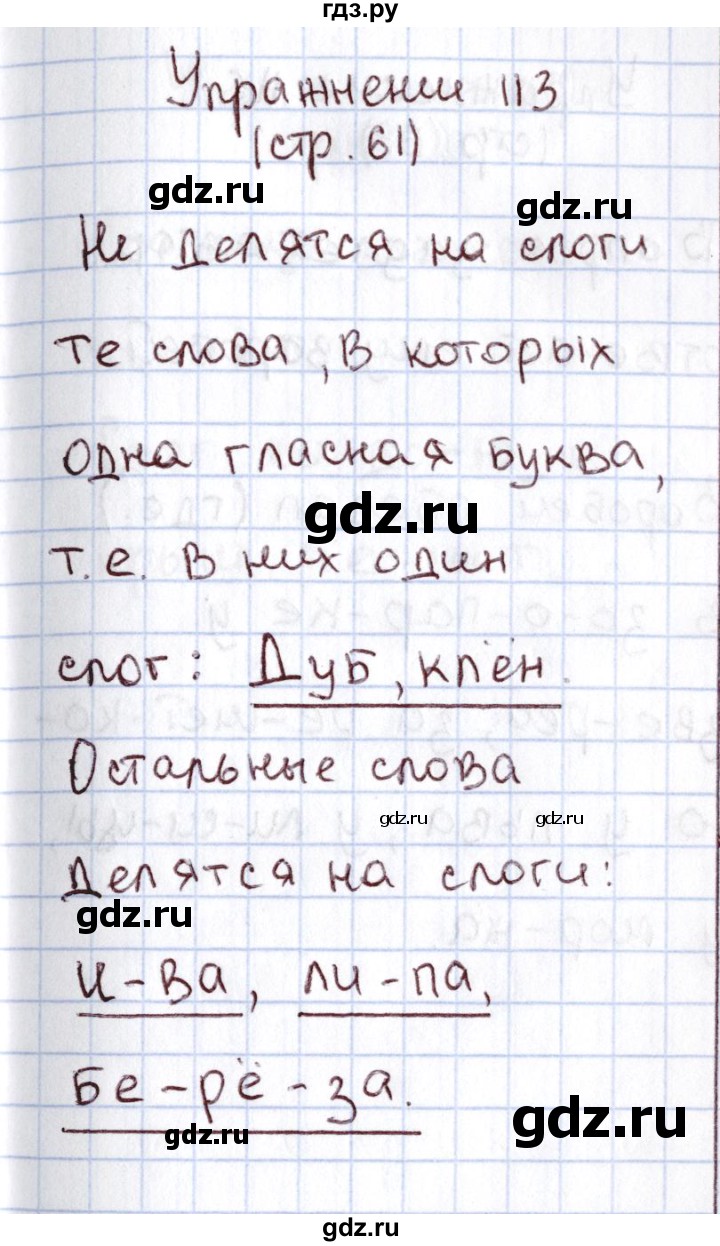 гдз.ру
Упражнении 113
(стр. 61)
gdz.ru
gdz.ru
Не делятся на слоги
те слова, в которых
одна гласная буква,
gdz.ru
т.е. в них один
слог: Дуб, клён.
Остальные слова
gdz.ru gdz.ru
Делятся на слоги:
gdz.ru
и-ва, ли-па,
бе-рё-за.
gdz.ru
gdz.ru
gdz.ru